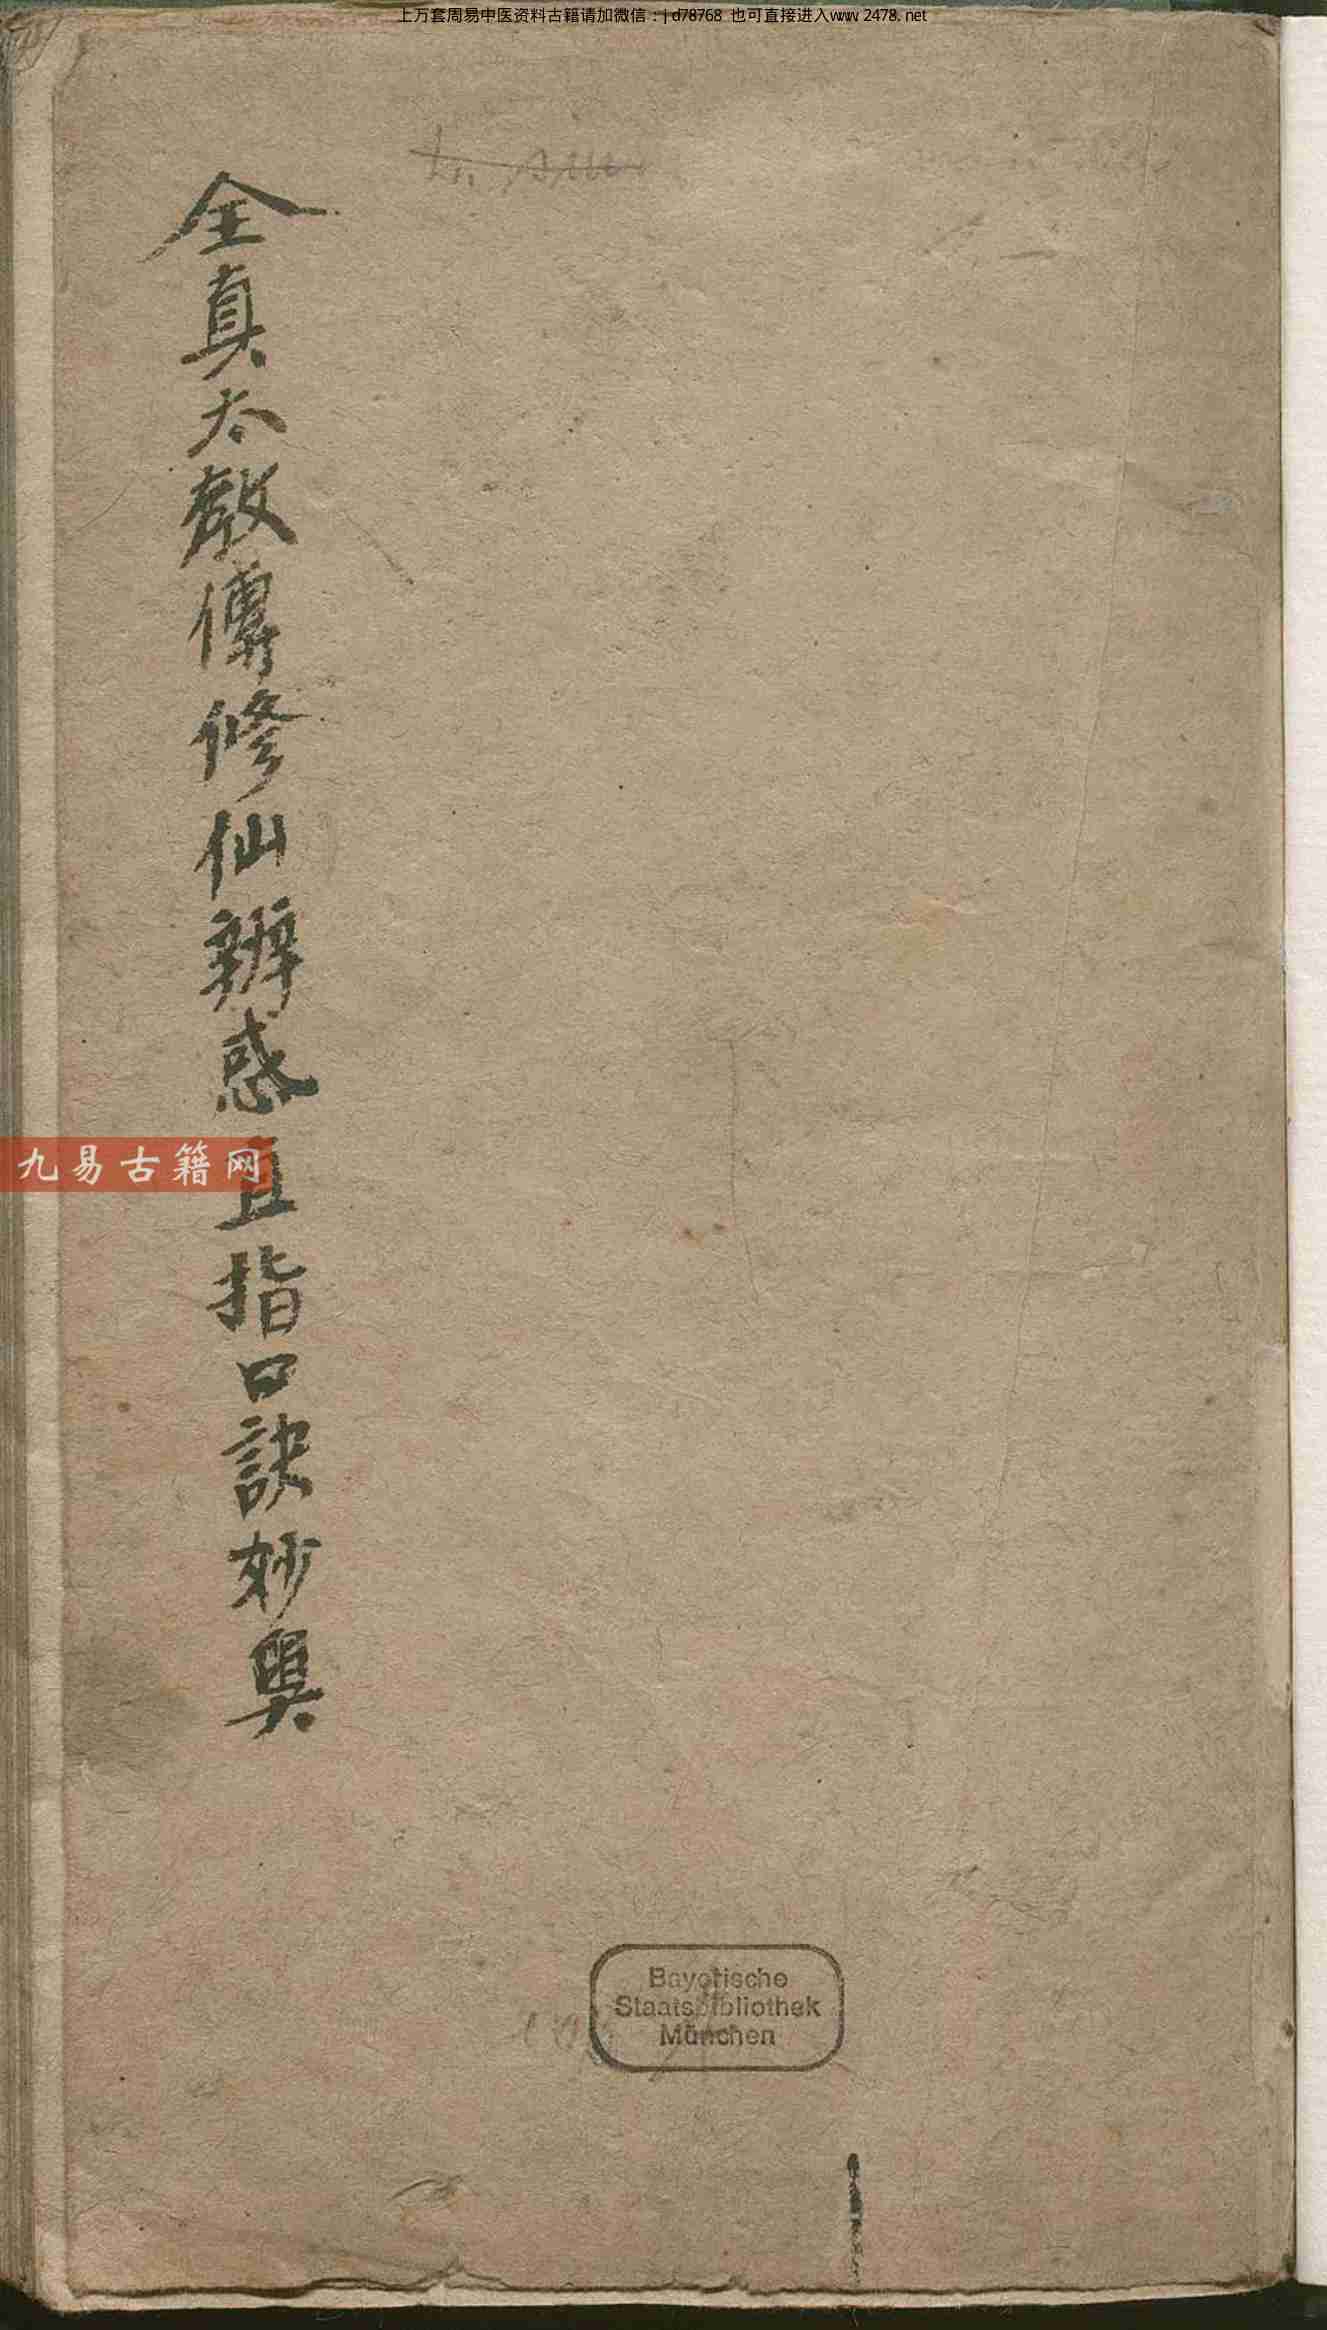 上万套周易中医资料古籍请加微信：jd78768 也可直接进入www.2478.net
全真太教傳修仙辨惑直指口訣妙奥
九易古籍网
Bayerische
Staatsbibliothek
München